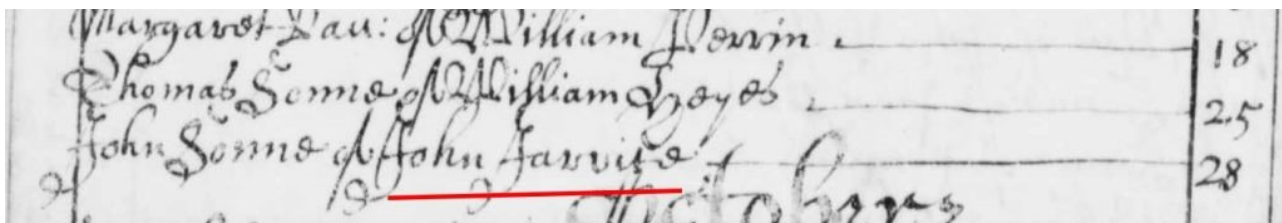 Margaret Dau: of William Perrin 18
Thomas Sonne of William Heyes 25
John Sonne of John Jarvise 28
Octobris